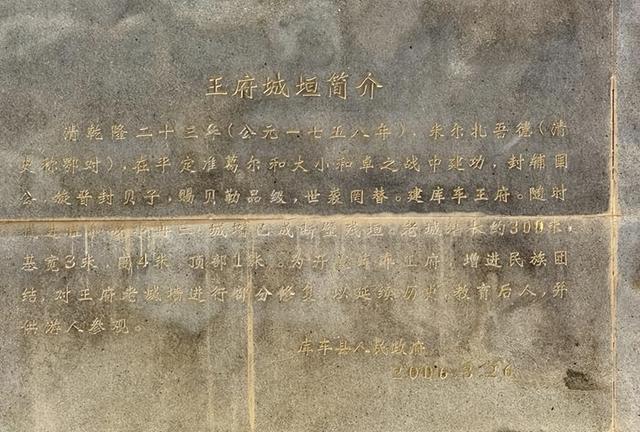 王府城垣简介
清乾隆二十三年(公元一七五八年),米尔扎吾德(清
史称鄂对),在平定准葛尔和大小和卓之战中建功,封辅国
公,旋晋封贝子,赐贝勒品级,世袭罔替。建库车王府。随时
城墙已成断壁残垣。老城墙长约300米,
基宽3米,高4米,顶部1米。为开放库车王府,增进民族团
结,对王府老城墙进行部分修复,以延续历史,教育后人,并
供游人参观。
库车县人民政府
2006.3.26